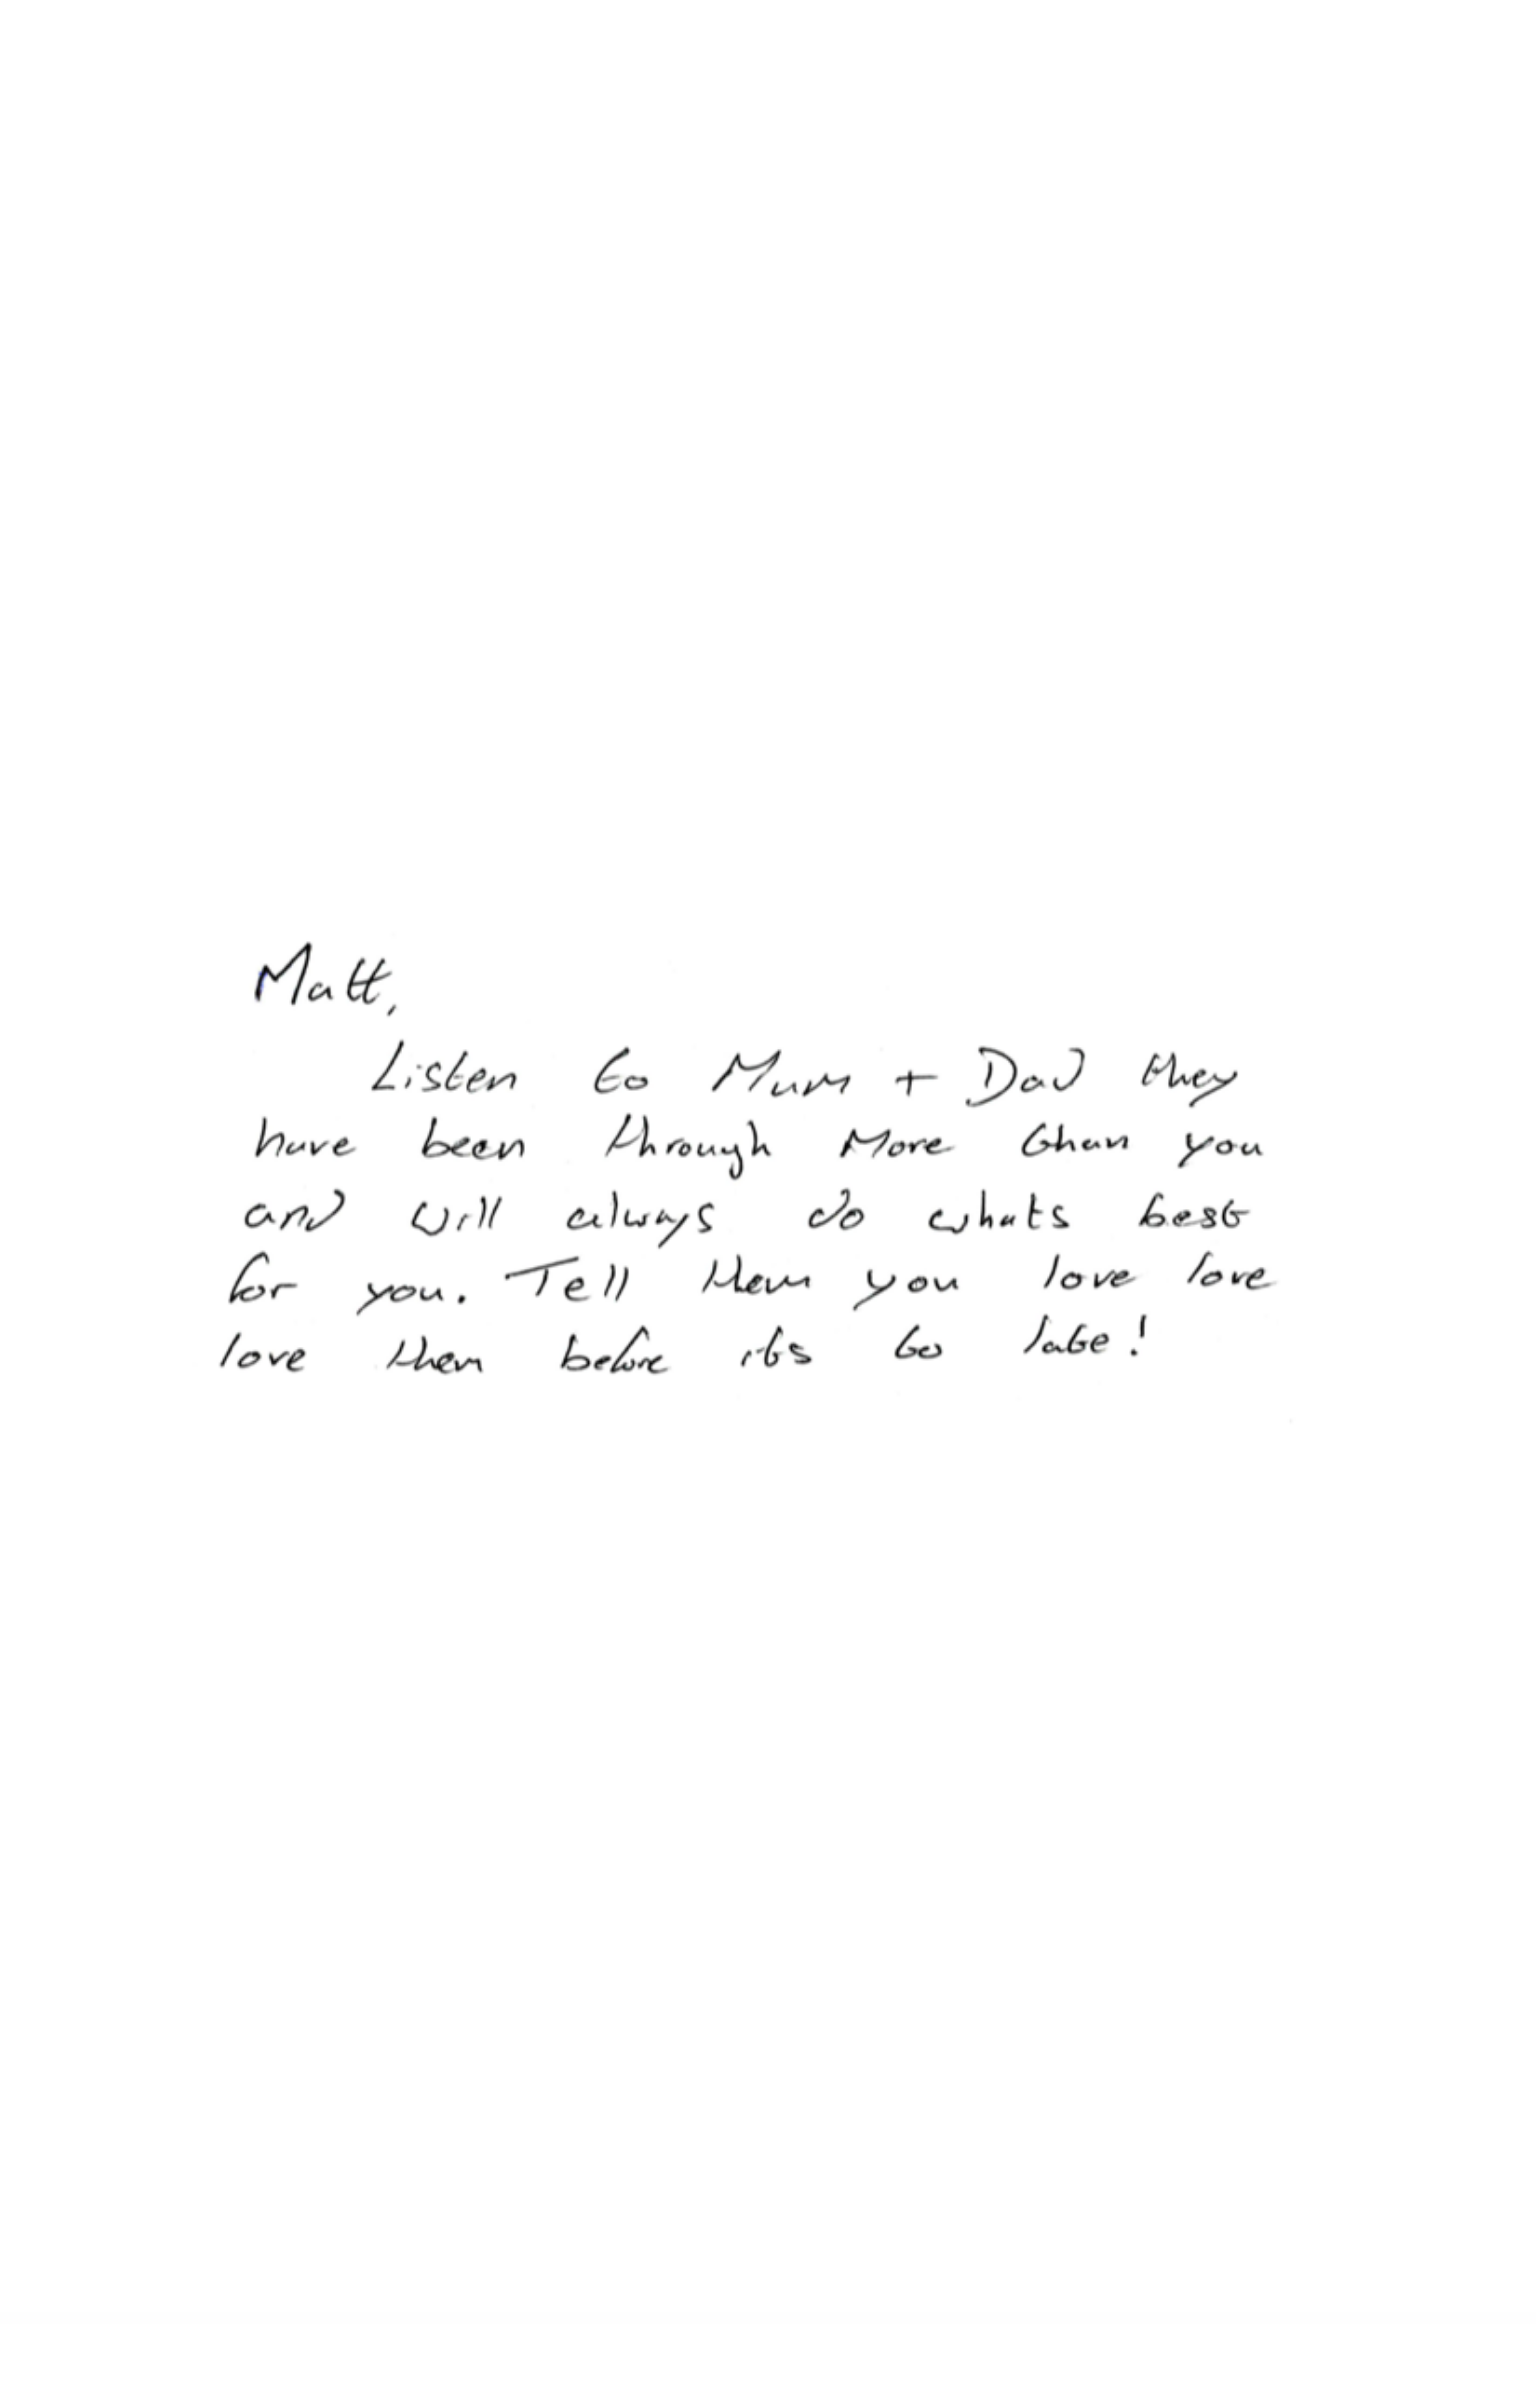 Matt,
Listen to Mum + Dad they
have been through More than you
and will always do whats best
for you. Tell them you love love
love them before its to late!